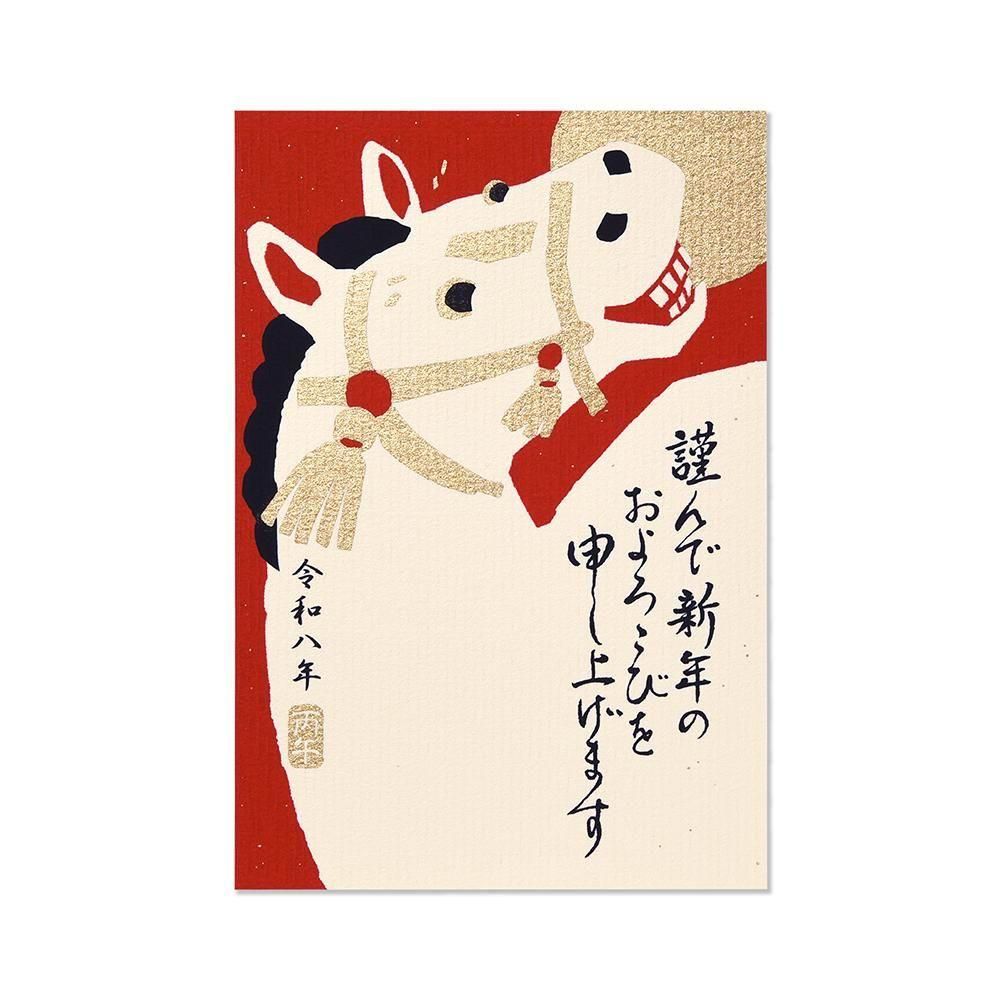 謹んで新年の
およろこびを
申し上げます
令和八年
丙午